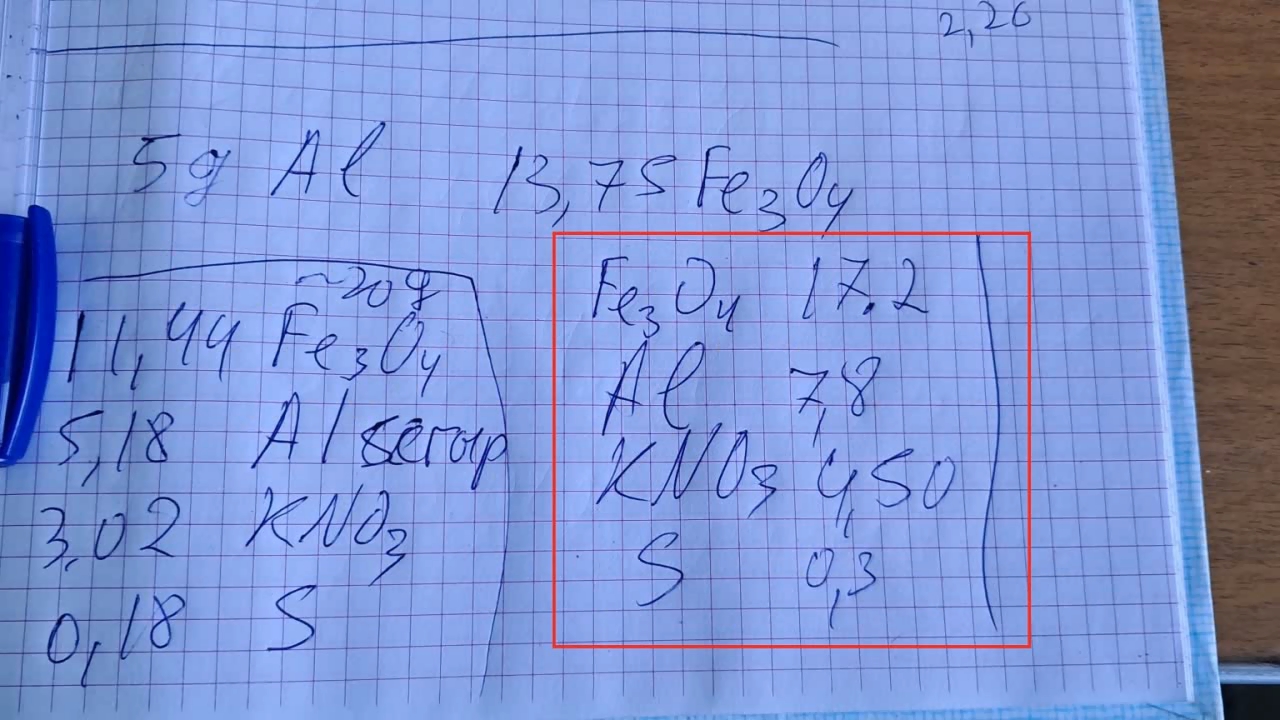 2,26
5g Al 13,75 Fe₃O₄
~20g
11,44 Fe₃O₄
5,18 Al
3,02 KNO₃
0,18 S
Fe₃O₄ 17.2
Al 7,8
KNO₃ 4,50
S 0,3